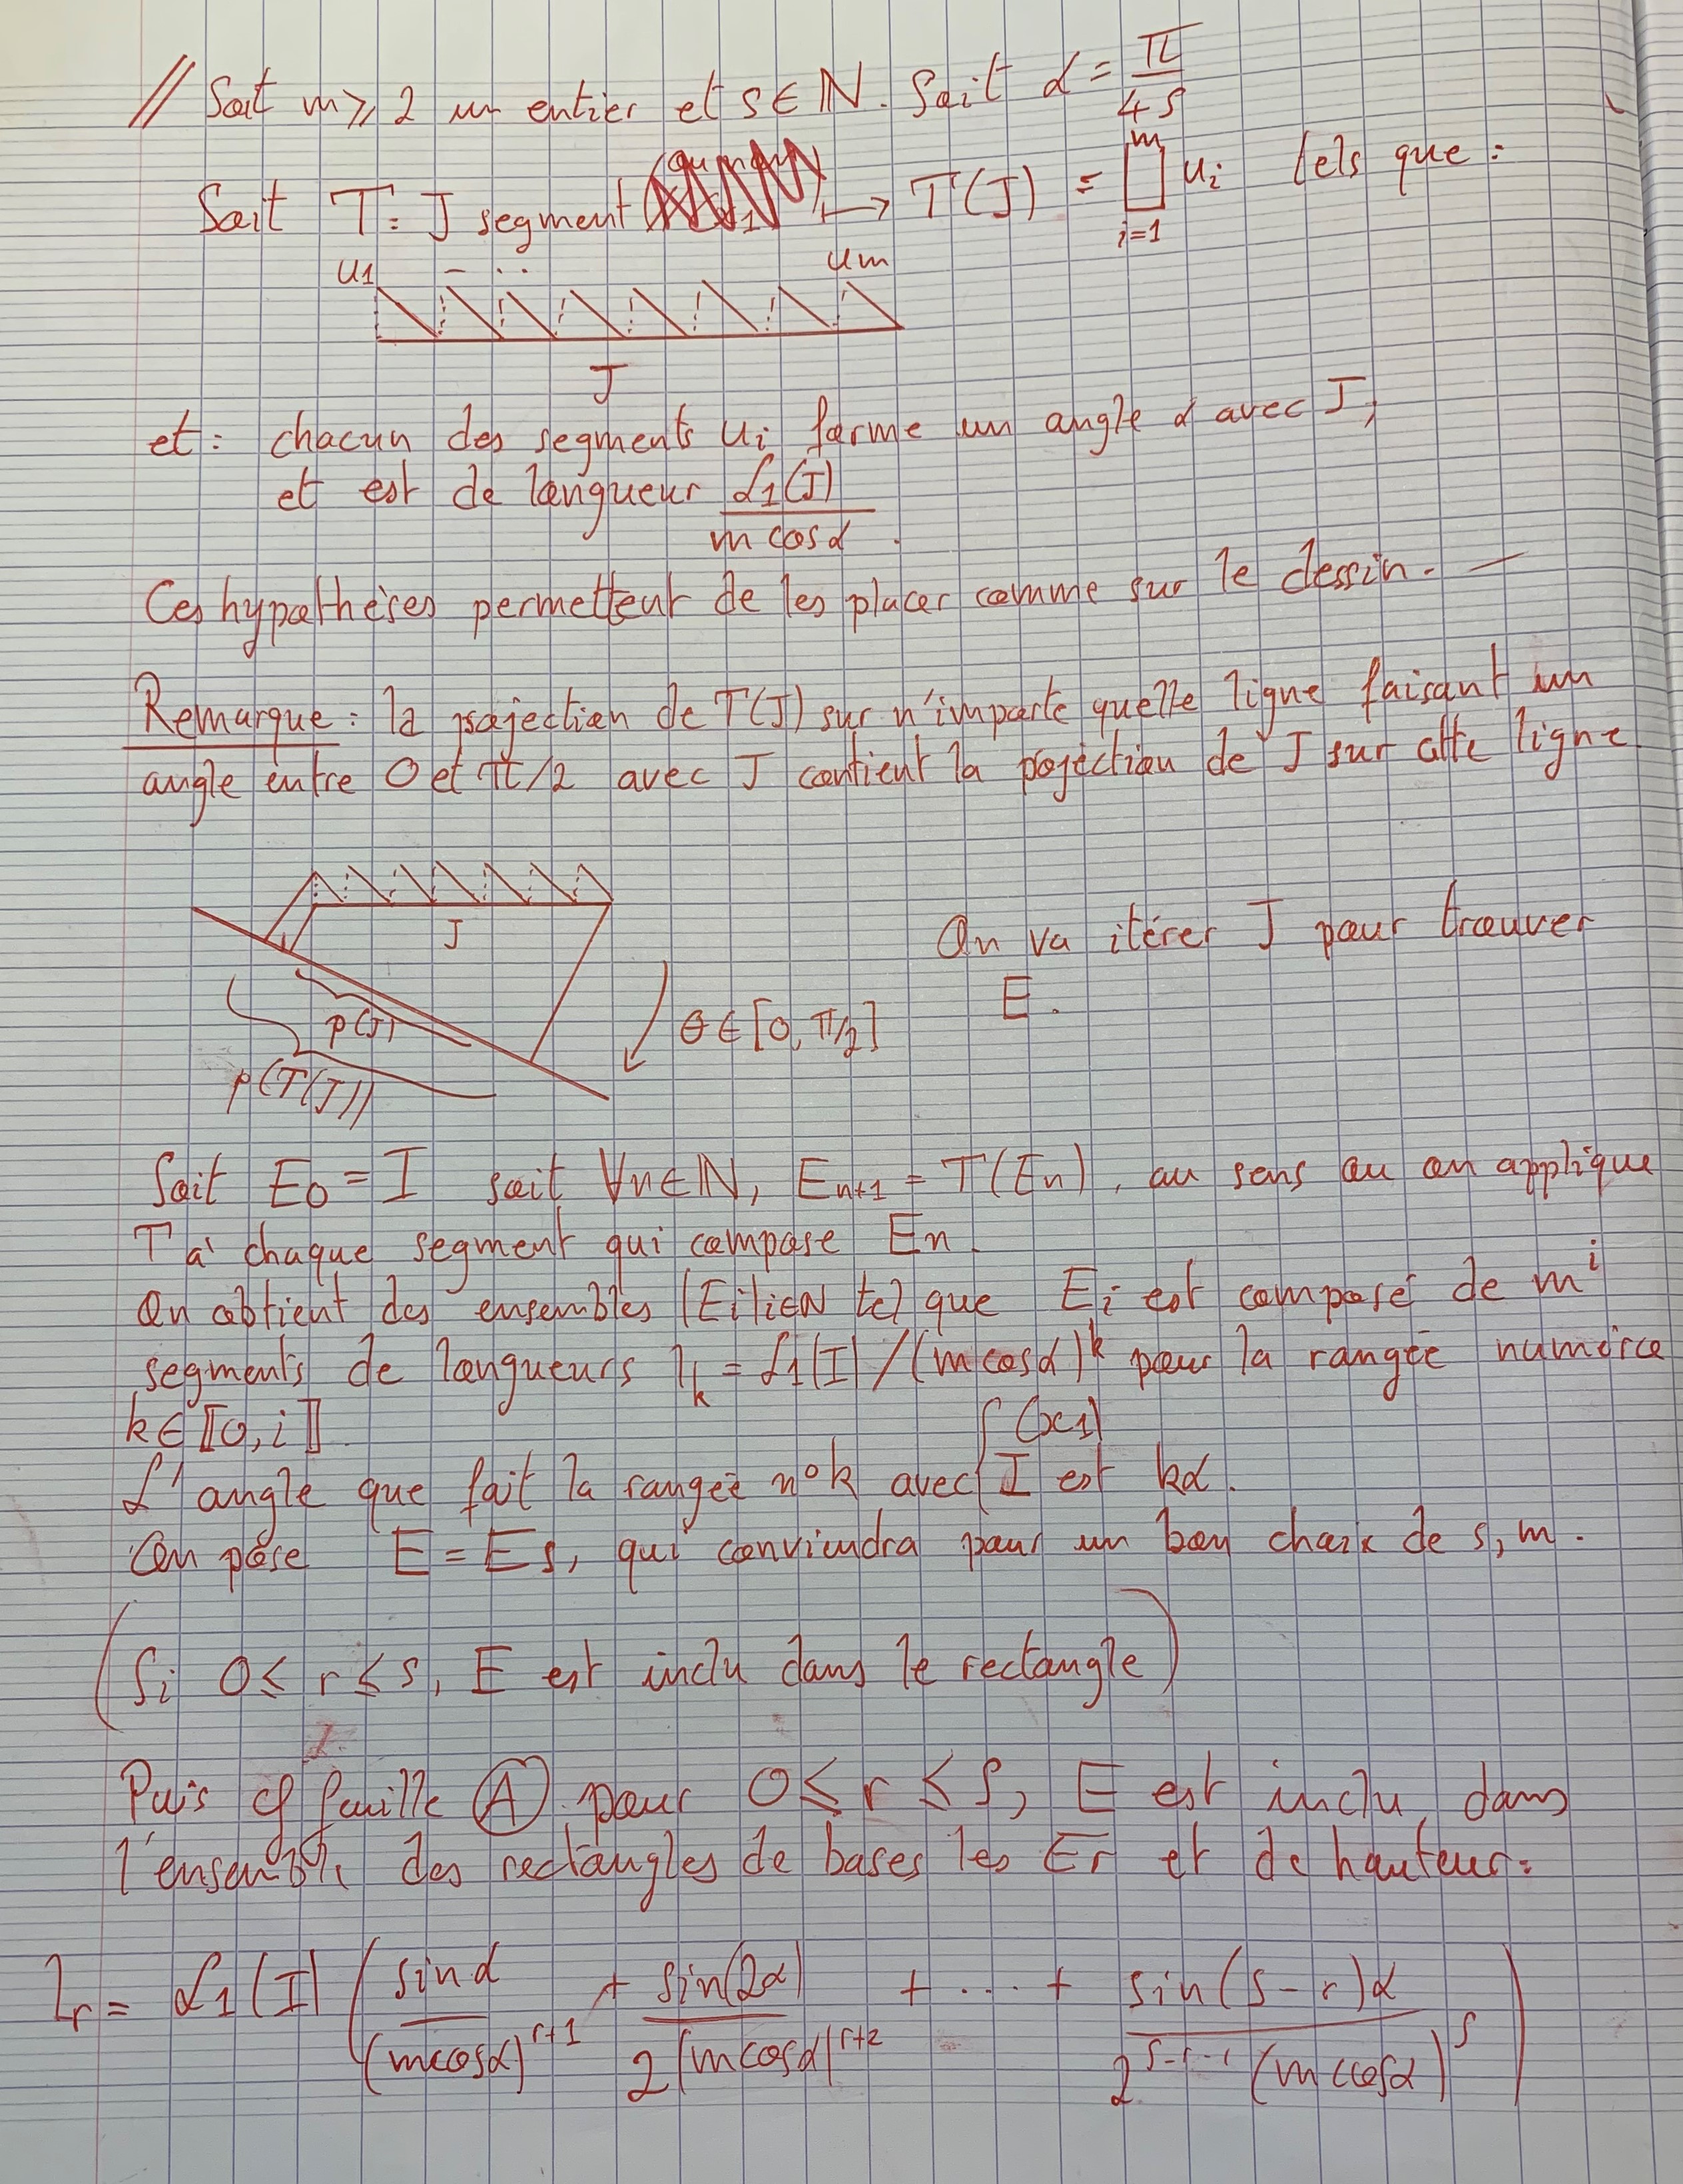 // Soit m ≥ 2 un entier et s ∈ ℕ. Soit α = π/4s
Soit T : J segment ↦ T(J) = ⨆_{i=1}^{m} u_i tels que :
u1 - .. um
J
et : chacun des segments u_i forme un angle α avec J,
et est de longueur L1(J)/(m cos α).
Ces hypothèses permettent de les placer comme sur le dessin. —
Remarque : la projection de T(J) sur n'importe quelle ligne faisant un
angle entre 0 et π/2 avec J contient la projection de J sur cette ligne
J
On va itérer J pour trouver
E.
p(J)
θ ∈ [0, π/2]
p(T(J))
Soit E0 = I soit ∀n∈ℕ, E_{n+1} = T(E_n), au sens où on applique
T à chaque segment qui compose En.
On obtient des ensembles (Ei)i∈ℕ tel que Ei est composé de m^i
segments de longueurs η_k = L1(I)/(m cos α)^k pour la rangée numéro
k ∈ ⟦0, i⟧
(x1)
L'angle que fait la rangée n°k avec I est kα.
On pose E = Es, qui conviendra pour un bon choix de s, m.
(Si 0 ≤ r ≤ s, E est inclu dans le rectangle)
Puis cf feuille Ⓐ pour 0 ≤ r ≤ s, E est inclu dans
l'ensemble des rectangles de bases les Er et de hauteur :
l_r = L1(I) ( sin α/(m cos α)^{r+1} + sin(2α)/2(m cos α)^{r+2} + .... + sin(s-r)α/2^{s-r-1}(m cos α)^s )